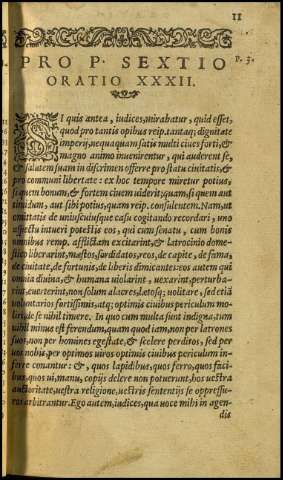 11
PRO P. SEXTIO
P. 3.
ORATIO XXXII.
SI quis antea, iudices, mirabatur, quid esset,
quod pro tantis opibus reip. tantaq; dignitate
imperij, nequaquam satis multi ciues forti, &
magno animo inuenirentur, qui auderent se,
& salutem suam in discrimen offerre pro statu ciuitatis, &
pro communi libertate: ex hoc tempore miretur potius,
si quem bonum, & fortem ciuem uiderit; quam, si quem aut
timidum, aut sibi potius, quam reip. consulentem. Nam, ut
omittatis de uniuscuiusque casu cogitando recordari, uno
aspectu intueri potestis eos, qui cum senatu, cum bonis
omnibus remp. afflictam excitarint, & latrocinio dome-
stico liberarint, mæstos, sordidatos, reos, de capite, de fama,
de ciuitate, de fortunis, de liberis dimicantes: eos autem qui
omnia diuina, & humana uiolarint, uexarint, perturba-
rint, euerterint, non solum alacres, lætosq; uolitare, sed etiã
uoluntarios fortissimis, atq; optimis ciuibus periculum mo-
liri, de se nihil timere. In quo cum multa sunt indigna, tum
nihil minus est ferendum, quam quod iam, non per latrones
suos, non per homines egestate, & scelere perditos, sed per
uos nobis, per optimos uiros optimis ciuibus periculum in-
ferre conantur: &, quos lapidibus, quos ferro, quos faci-
bus, quos ui, manu, copijs delere non potuerunt, hos uestra
auctoritate, uestra religione, uestris sententijs se oppressu-
ros arbitrantur. Ego autem, iudices, qua uoce mihi in agen-
dis